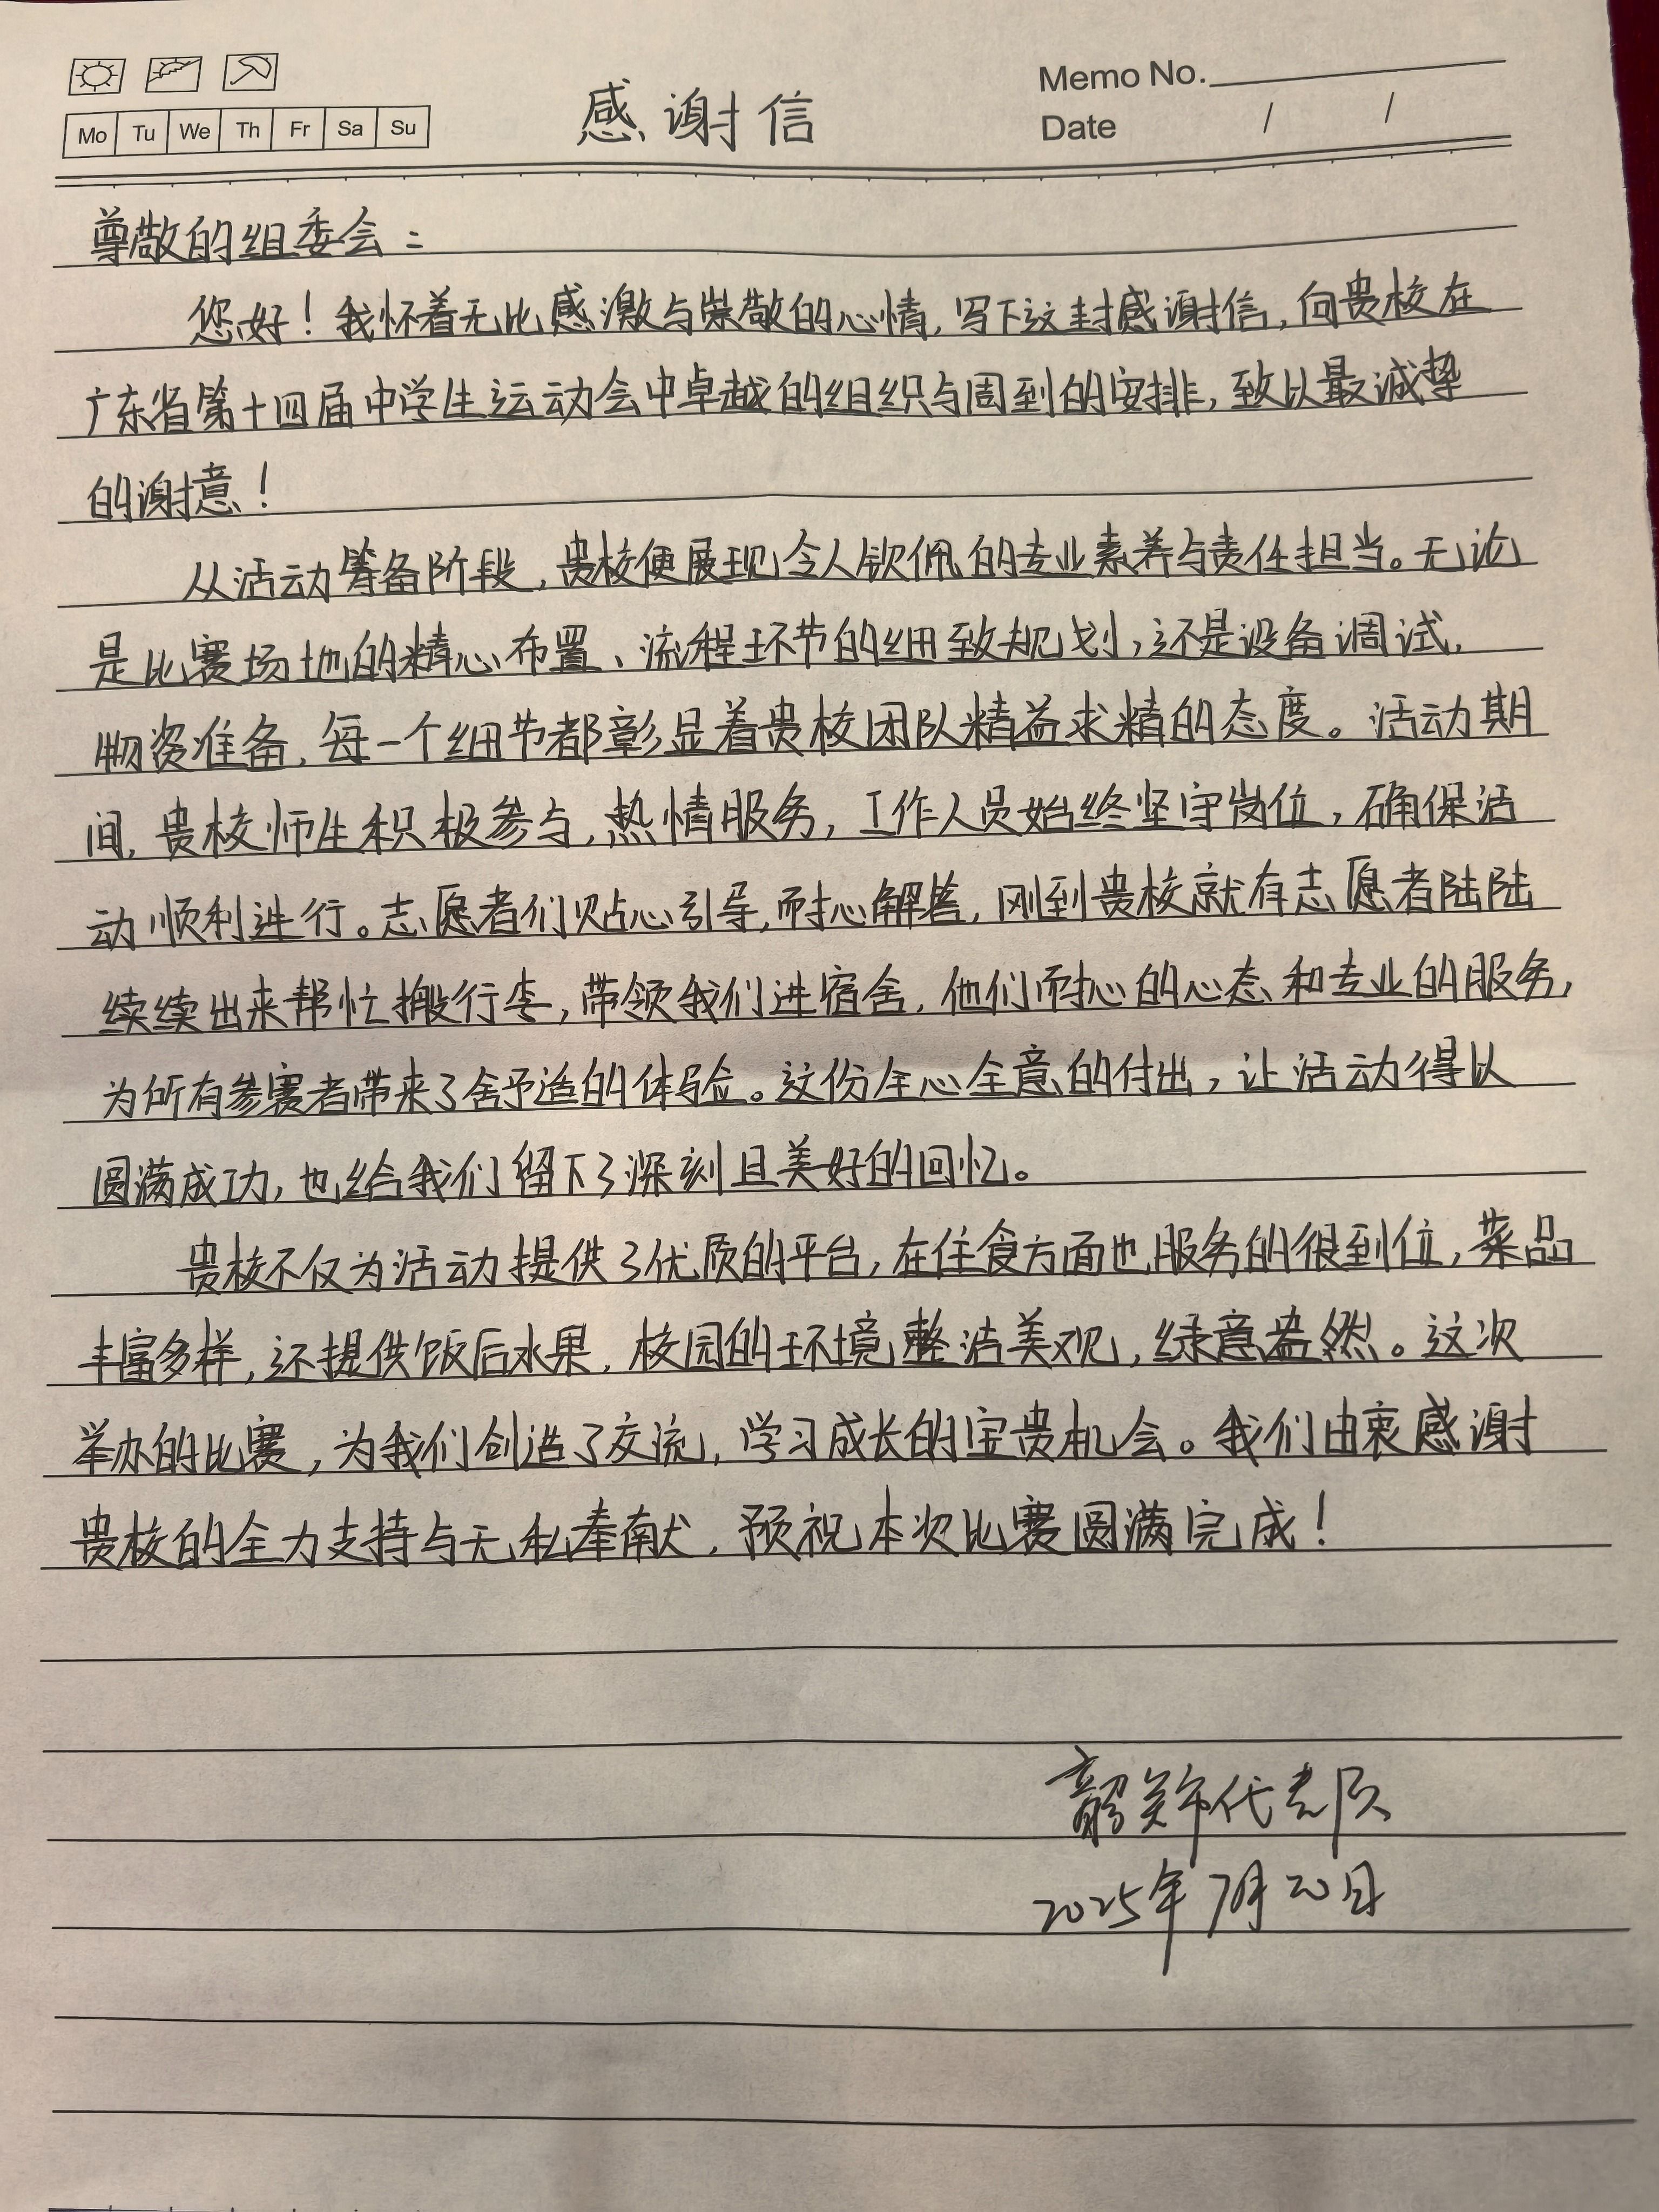 Memo No.
Mo Tu We Th Fr Sa Su
感谢信
Date / /
尊敬的组委会：
您好！我怀着无比感激与崇敬的心情，写下这封感谢信，向贵校在
广东省第十四届中学生运动会中卓越的组织与周到的安排，致以最诚挚
的谢意！
从活动筹备阶段，贵校便展现令人钦佩的专业素养与责任担当。无论
是比赛场地的精心布置、流程环节的细致规划，还是设备调试，
物资准备，每一个细节都彰显着贵校团队精益求精的态度。活动期
间，贵校师生积极参与，热情服务，工作人员始终坚守岗位，确保活
动顺利进行。志愿者们贴心引导，耐心解答，刚到贵校就有志愿者陆陆
续续出来帮忙搬行李，带领我们进宿舍，他们耐心的心态和专业的服务，
为所有参赛者带来了舍予适的体验。这份全心全意的付出，让活动得以
圆满成功，也给我们留下了深刻且美好的回忆。
贵校不仅为活动提供了优质的平台，在住食方面也服务的很到位，菜品
丰富多样，还提供饭后水果，校园的环境整洁美观，绿意盎然。这次
举办的比赛，为我们创造了交流，学习成长的宝贵机会。我们由衷感谢
贵校的全力支持与无私奉献，预祝本次比赛圆满完成！
韶关市代表队
2025年7月20日